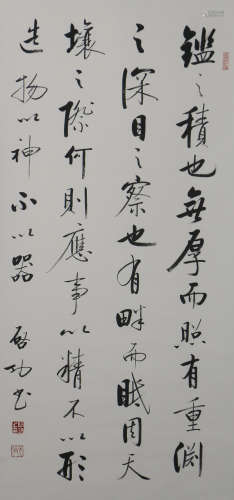 鑑之積也無厚而照有重淵
之深目之察也有畔而眂周天
壤之際何則應事以精不以形
造物以神不以器 啓功書